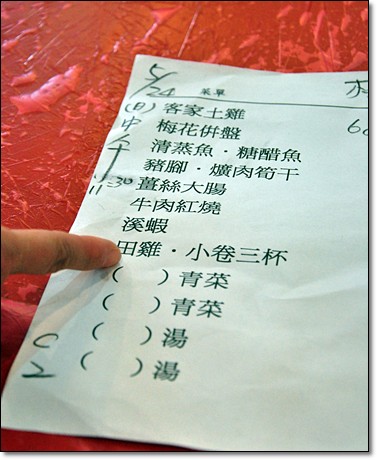 5/24 菜單
(日) 客家土雞
中 梅花併盤
午 清蒸魚．糖醋魚
豬腳．爌肉筍干
11:30 薑絲大腸
牛肉紅燒
溪蝦
田雞．小卷三杯
(　)青菜
(　)青菜
(　)湯
(　)湯